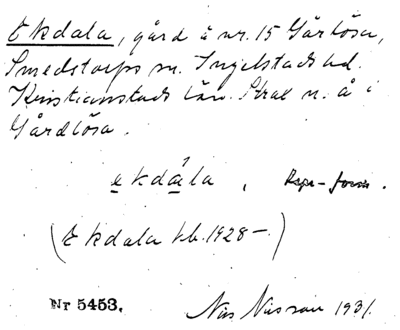 Ekdala, gård å nr. 15 Gårlösa,
Smedstorps sn. Ingelstads hd.
Kristianstads län. Strax n. å i
Gårdlösa.
ekdála, Repr-form.
(Ekdala kb. 1928-)
Nr 5453. Nils Nilsson 1931.